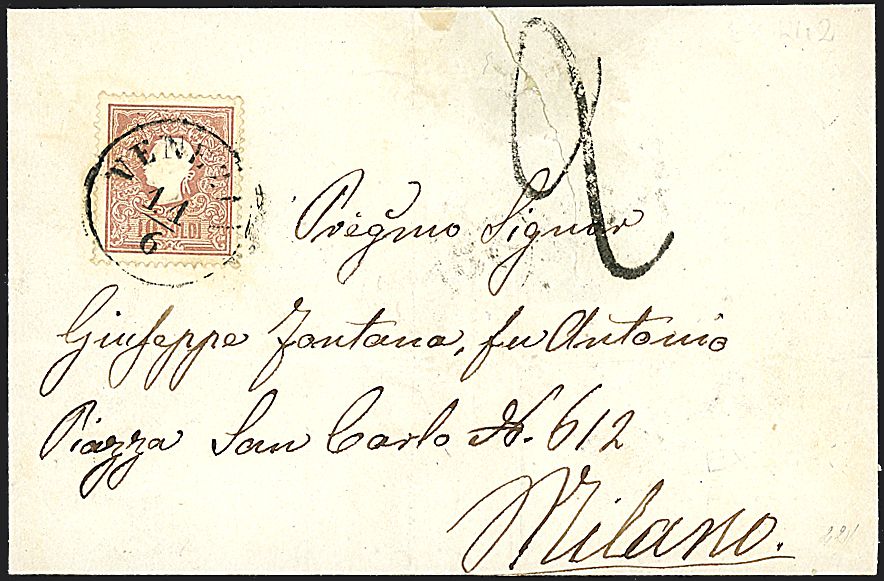 2
VENEZIA
11
6
10 SOLDI
Preg̃mo Signor
Giuseppe Fontana, fu Antonio
Piazza San Carlo N. 612
Milano.